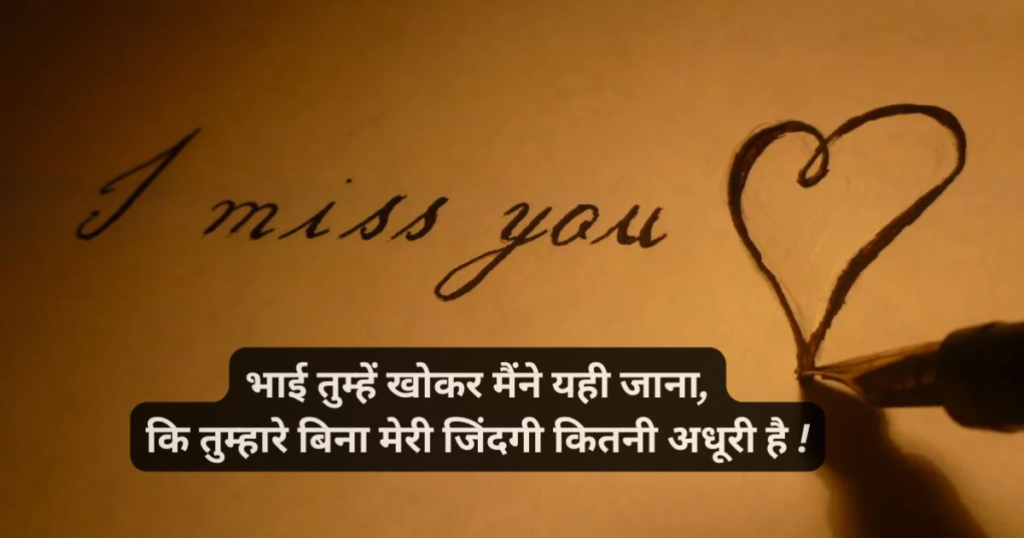 I miss you
भाई तुम्हें खोकर मैंने यही जाना,
कि तुम्हारे बिना मेरी जिंदगी कितनी अधूरी है !